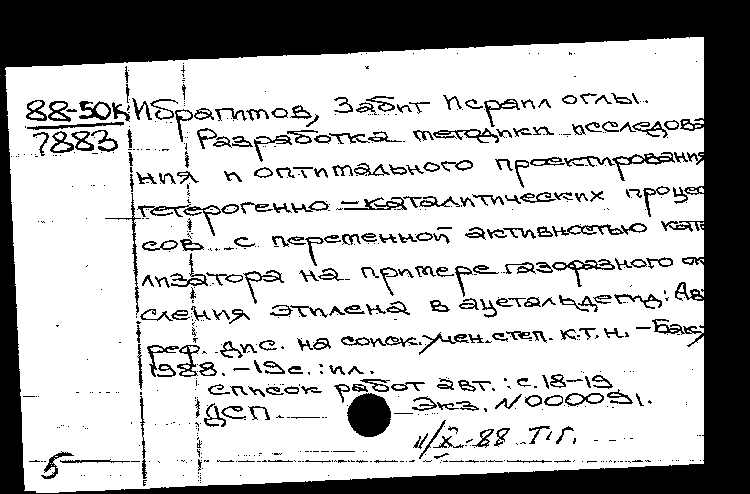 88-50к Ибрагимов, Забит Исраил оглы.
7883 Разработка методики исследова
ния и оптимального проектирования
гетерогенно-каталитических процес
сов с переменной активностью ката
лизатора на примере газофазного ок
сления этилена в ацетальдегид: Авт
реф. дис. на соиск. учен. степ. к.т.н. - Баку
1988. - 19 с. : ил.
Список работ авт. : с. 18-19
ДСП Экз. N000091.
11/X-88 Т.Г.
5